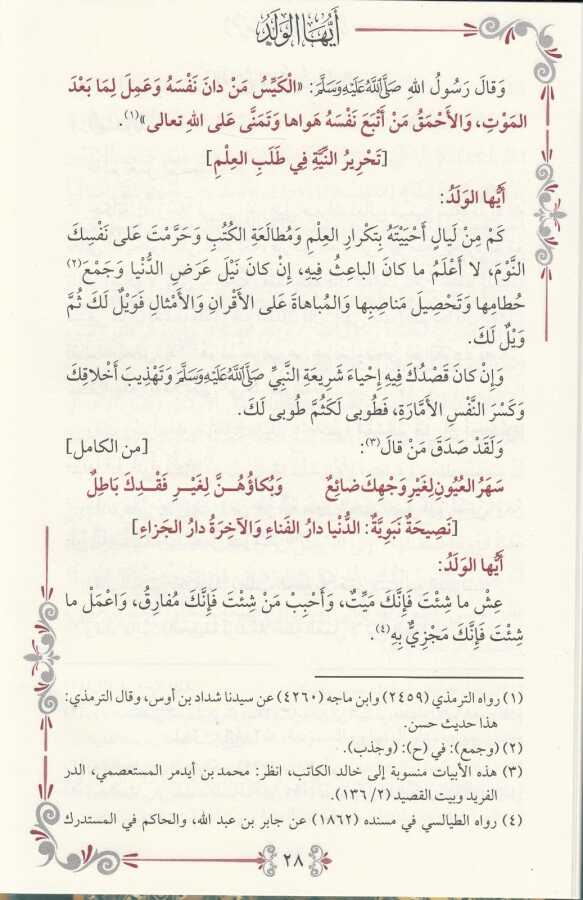 أَيُّهَا الوَلَدُ
وَقالَ رَسُولُ اللهِ صَلَّى اللَّهُ عَلَيْهِ وَسَلَّمَ: «الْكَيِّسُ مَنْ دانَ نَفْسَهُ وَعَمِلَ لِمَا بَعْدَ
المَوْتِ، وَالأَحْمَقُ مَنْ أَتْبَعَ نَفْسَهُ هَواها وَتَمَنَّى عَلى اللهِ تعالى»(١).
[تَحْرِيرُ النِّيَّةِ فِي طَلَبِ العِلْمِ]
أَيُّها الوَلَدُ:
كَمْ مِنْ لَيالٍ أَحْيَيْتَهُ بِتَكْرارِ العِلْمِ وَمُطالَعَةِ الكُتُبِ وَحَرَّمْتَ عَلى نَفْسِكَ
النَّوْمَ، لا أَعْلَمُ ما كانَ الباعِثُ فِيهِ، إِنْ كانَ نَيْلَ عَرَضِ الدُّنْيا وَجَمْعَ(٢)
حُطامِها وَتَحْصِيلَ مَناصِبِها وَالمُباهاةَ عَلى الأَقْرانِ وَالأَمْثالِ فَوَيْلٌ لَكَ ثُمَّ
وَيْلٌ لَكَ.
وَإِنْ كانَ قَصْدُكَ فِيهِ إِحْياءَ شَرِيعَةِ النَّبِيِّ صَلَّى اللَّهُ عَلَيْهِ وَسَلَّمَ وَتَهْذِيبَ أَخْلاقِكَ
وَكَسْرَ النَّفْسِ الأَمَّارَةِ، فَطُوبى لَكَثُمَّ طُوبى لَكَ.
وَلَقَدْ صَدَقَ مَنْ قالَ(٣): [من الكامل]
سَهَرُ العُيُونِ لِغَيْرِ وَجْهِكَ ضائِعٌ وَبُكاؤُهُنَّ لِغَيْرِ فَقْدِكَ باطِلٌ
[نَصِيحَةٌ نَبَوِيَّةٌ: الدُّنْيا دارُ الفَناءِ وَالآخِرَةُ دارُ الجَزاءِ]
أَيُّها الوَلَدُ:
عِشْ ما شِئْتَ فَإِنَّكَ مَيِّتٌ، وَأَحْبِبْ مَنْ شِئْتَ فَإِنَّكَ مُفارِقٌ، وَاعْمَلْ ما
شِئْتَ فَإِنَّكَ مَجْزِيٌّ بِهِ(٤).
(١) رواه الترمذي (٢٤٥٩) وابن ماجه (٤٢٦٠) عن سيدنا شداد بن أوس، وقال الترمذي:
هذا حديث حسن.
(٢) (وجمع): في (ح): (وجذب).
(٣) هذه الأبيات منسوبة إلى خالد الكاتب، انظر: محمد بن أيدمر المستعصمي، الدر
الفريد وبيت القصيد (٢/ ١٣٦).
(٤) رواه الطيالسي في مسنده (١٨٦٢) عن جابر بن عبد الله، والحاكم في المستدرك
٢٨